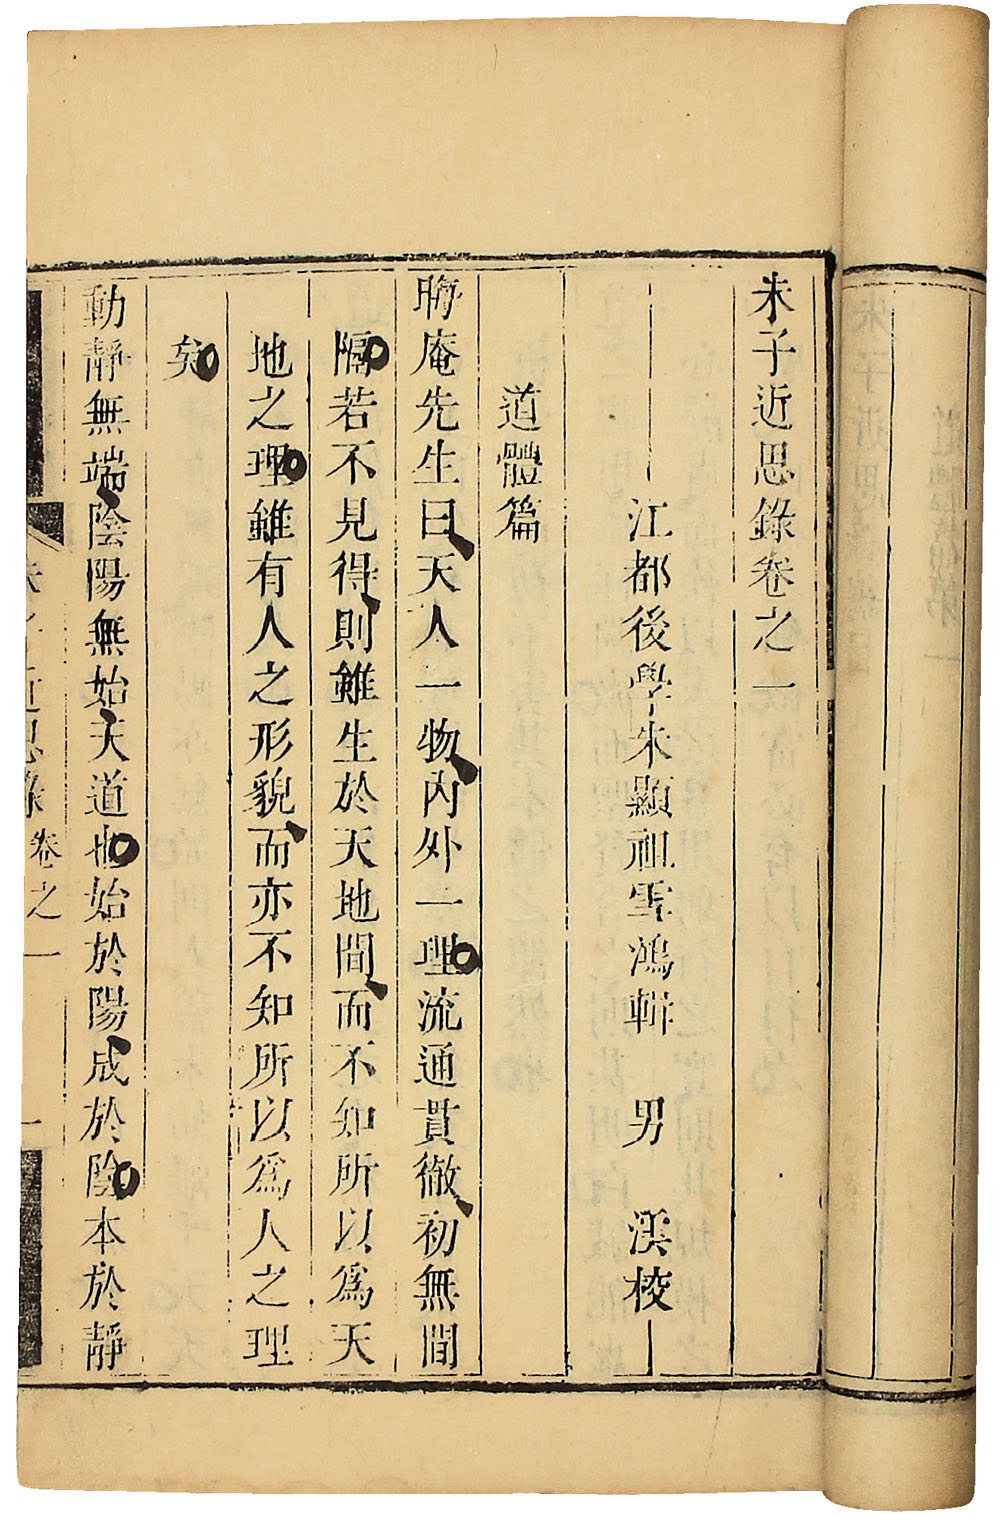 朱子近思錄卷之一
江都後學朱顯祖雪鴻輯　男　渶校
道體篇
晦庵先生曰天人一物內外一理流通貫徹初無間
隔若不見得則雖生於天地間而不知所以爲天
地之理雖有人之形貌而亦不知所以爲人之理
矣
動靜無端陰陽無始天道也始於陽成於陰本於靜
朱子近思錄 卷之一
一